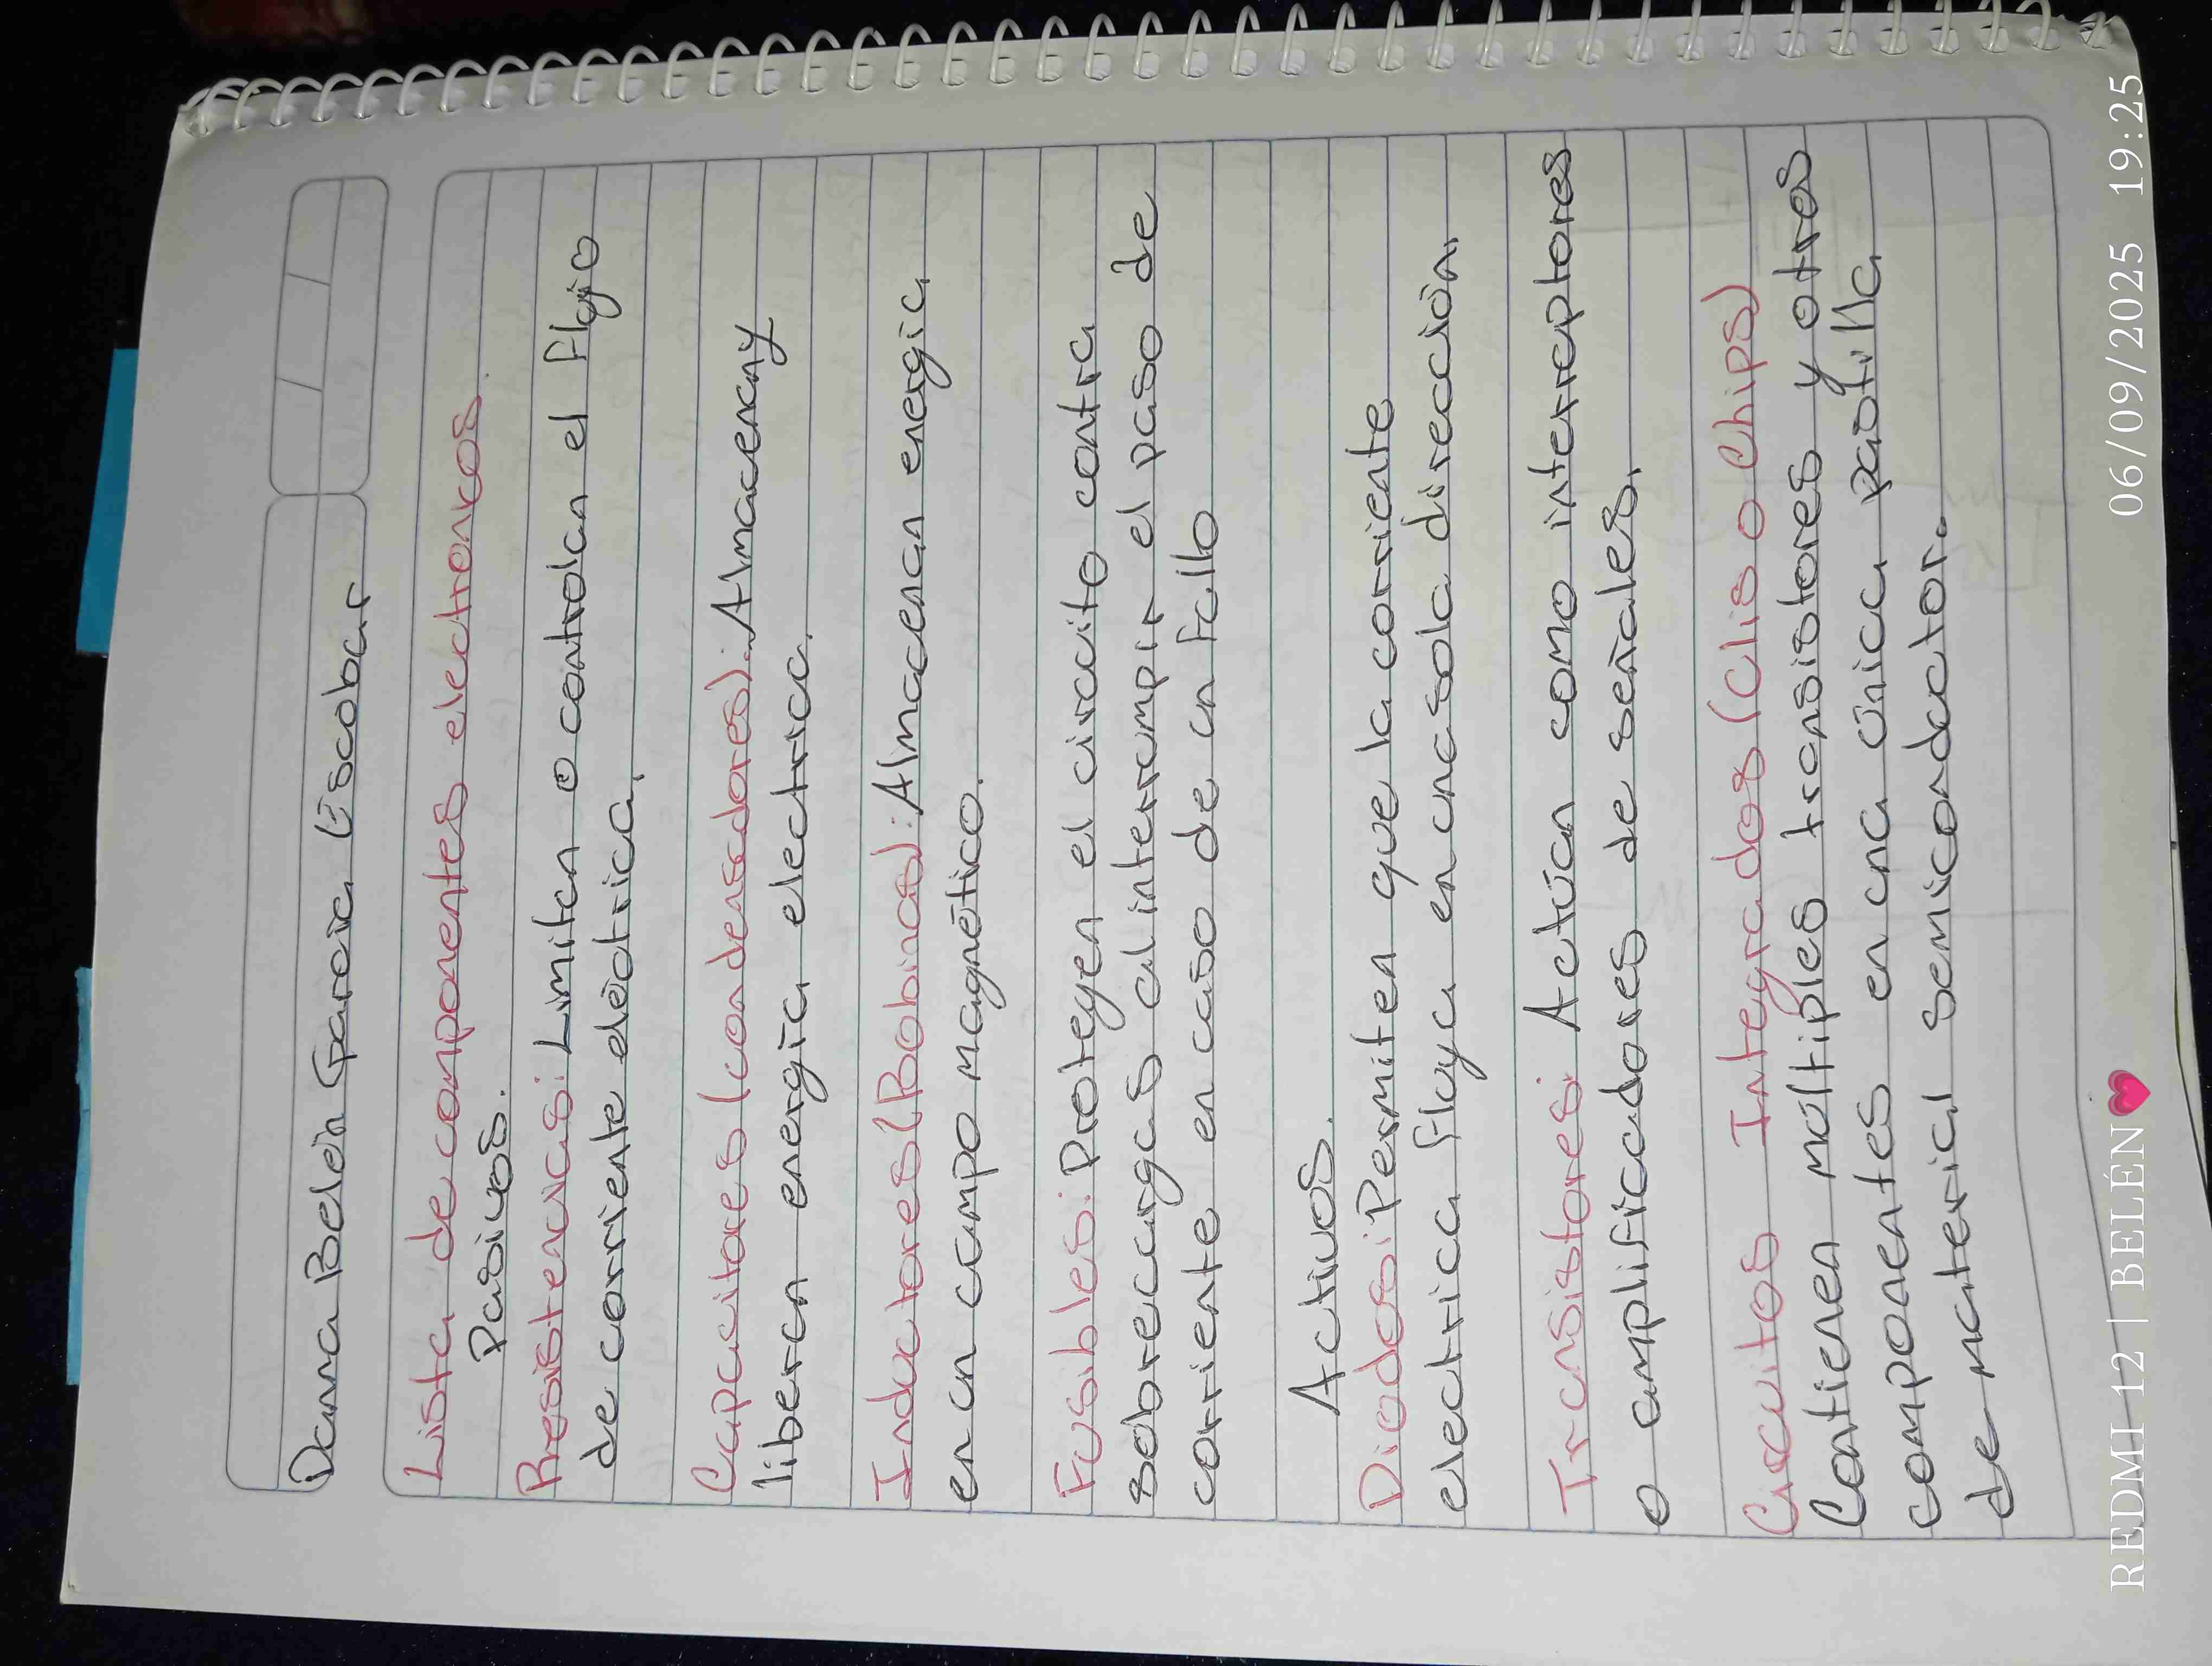 Danna Belén García Escobar
Lista de componentes electronicos.
Pasivos.
Resistencias: Limitan o controlan el flujo
de corriente eléctrica.
Capacitores (condensadores): Almacenan y
liberan energía electrica.
Inductores (Bobinas): Almacenan energia
en un campo magnético.
Fusibles: Protegen el circuito contra
sobrecargas al interrumpir el paso de
corriente en caso de un fallo
Activos.
Diodos: Permiten que la corriente
electrica fluya en una sola dirección.
Transistores: Actúan como interruptores
o amplificadores de señales.
Circuitos Integrados (CIs o Chips)
Contienen múltiples transistores y otros
componentes en una única pastilla
de material semiconductor.
REDMI 12 | BELÉN💗 06/09/2025 19:25